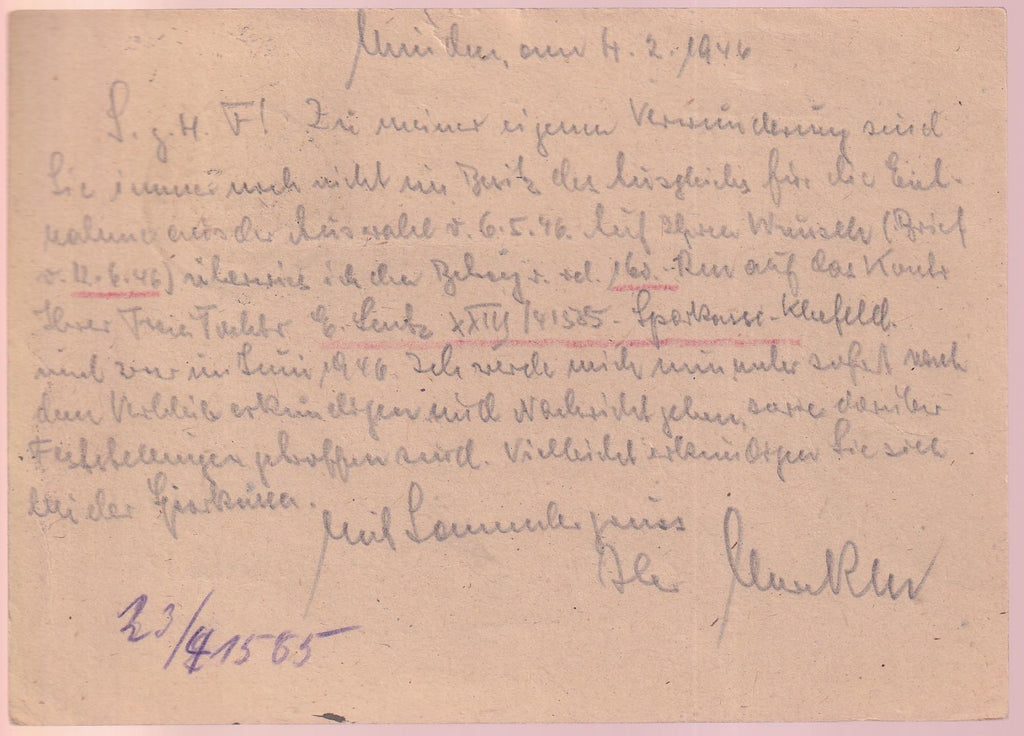 Minden, am 4.2.1946
S. g. H. F! Zu meiner eigenen Verwunderung sind
Sie immer noch nicht im Besitz des Ausgleichs für die Ent-
nahme aus der Auswahl v. 6.5.46. Auf Ihren Wunsch (Brief
v. 12.6.46) überwies ich den Betrag v. 160.- Rm auf das Konto
Ihrer Frau Tochter E. Lentz XXIII/41565 - Sparkasse - Krefeld.
und zwar im Juni 1946. Ich werde mich nun sofort nach
dem Verbleib erkundigen und Nachricht geben, sowie darüber
Feststellungen getroffen sind. Vielleicht erkundigen Sie sich
bei der Sparkasse.
Mit Sammlergruss
Ihr
23/41565